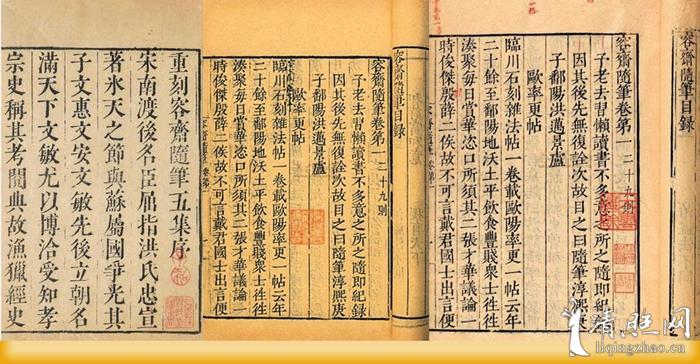 重刻容齋隨筆五集序
宋南渡後名臣屈指洪氏忠宣
著氷天之節與蘇屬國爭光其
子文惠文安文敏先後立朝名
滿天下文敏尤以博洽受知孝
宗史稱其考閱典故漁獵經史
容齋隨筆目錄
容齋隨筆卷第一 二十九則
予老去習懶讀書不多意之所之隨即紀錄
因其後先無復詮次故目之曰隨筆淳熙庚
子鄱陽洪邁景盧
歐率更帖
臨川石刻雜法帖一卷載歐陽率更一帖云年
二十餘至鄱陽地沃土平飲食豐賤衆士往往
湊聚每日賞華恣口所須其二張才華議論一
時俊傑殷薛二侯故不可言戴君國士出言便
容齋隨筆目錄
容齋隨筆卷第一 二十九則
予老去習懶讀書不多意之所之隨即紀錄
因其後先無復詮次故目之曰隨筆淳熙庚
子鄱陽洪邁景盧
歐率更帖
臨川石刻雜法帖一卷載歐陽率更一帖云年
二十餘至鄱陽地沃土平飲食豐賤衆士往往
湊聚每日賞華恣口所須其二張才華議論一
時俊傑殷薛二侯故不可言戴君國士出言便
liqingzhao.cn